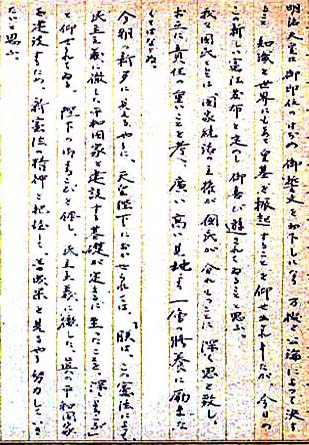 明治天皇は御即位のはじめ御誓文を御下しになり万機公論によって決す
ること、知識を世界に求め皇基を振起することを仰せ出されましたが、今日の
この新しい憲法発布を定めし御喜び遊されてゐることと思ふ。
我々国民としては、国家統治の主権が国民が分れることに深く思を致し、
お互に責任の重いことを考へ、広い高い見地から一層の修養に励まな
くてはならぬ。
今朝の新聞に見えるやうに、天皇陛下におかせられては、「朕は、この憲法によって、
民主主義に徹した平和国家を建設する基礎が定まるに至ったことを、深くよろこぶ」
と仰せられてゐる。陛下の御よろこびを体し、民主主義に徹した真の平和国家
を建設するため、新憲法の精神を把握し、善政果を見るやう努力して、き
たいと思ふ。